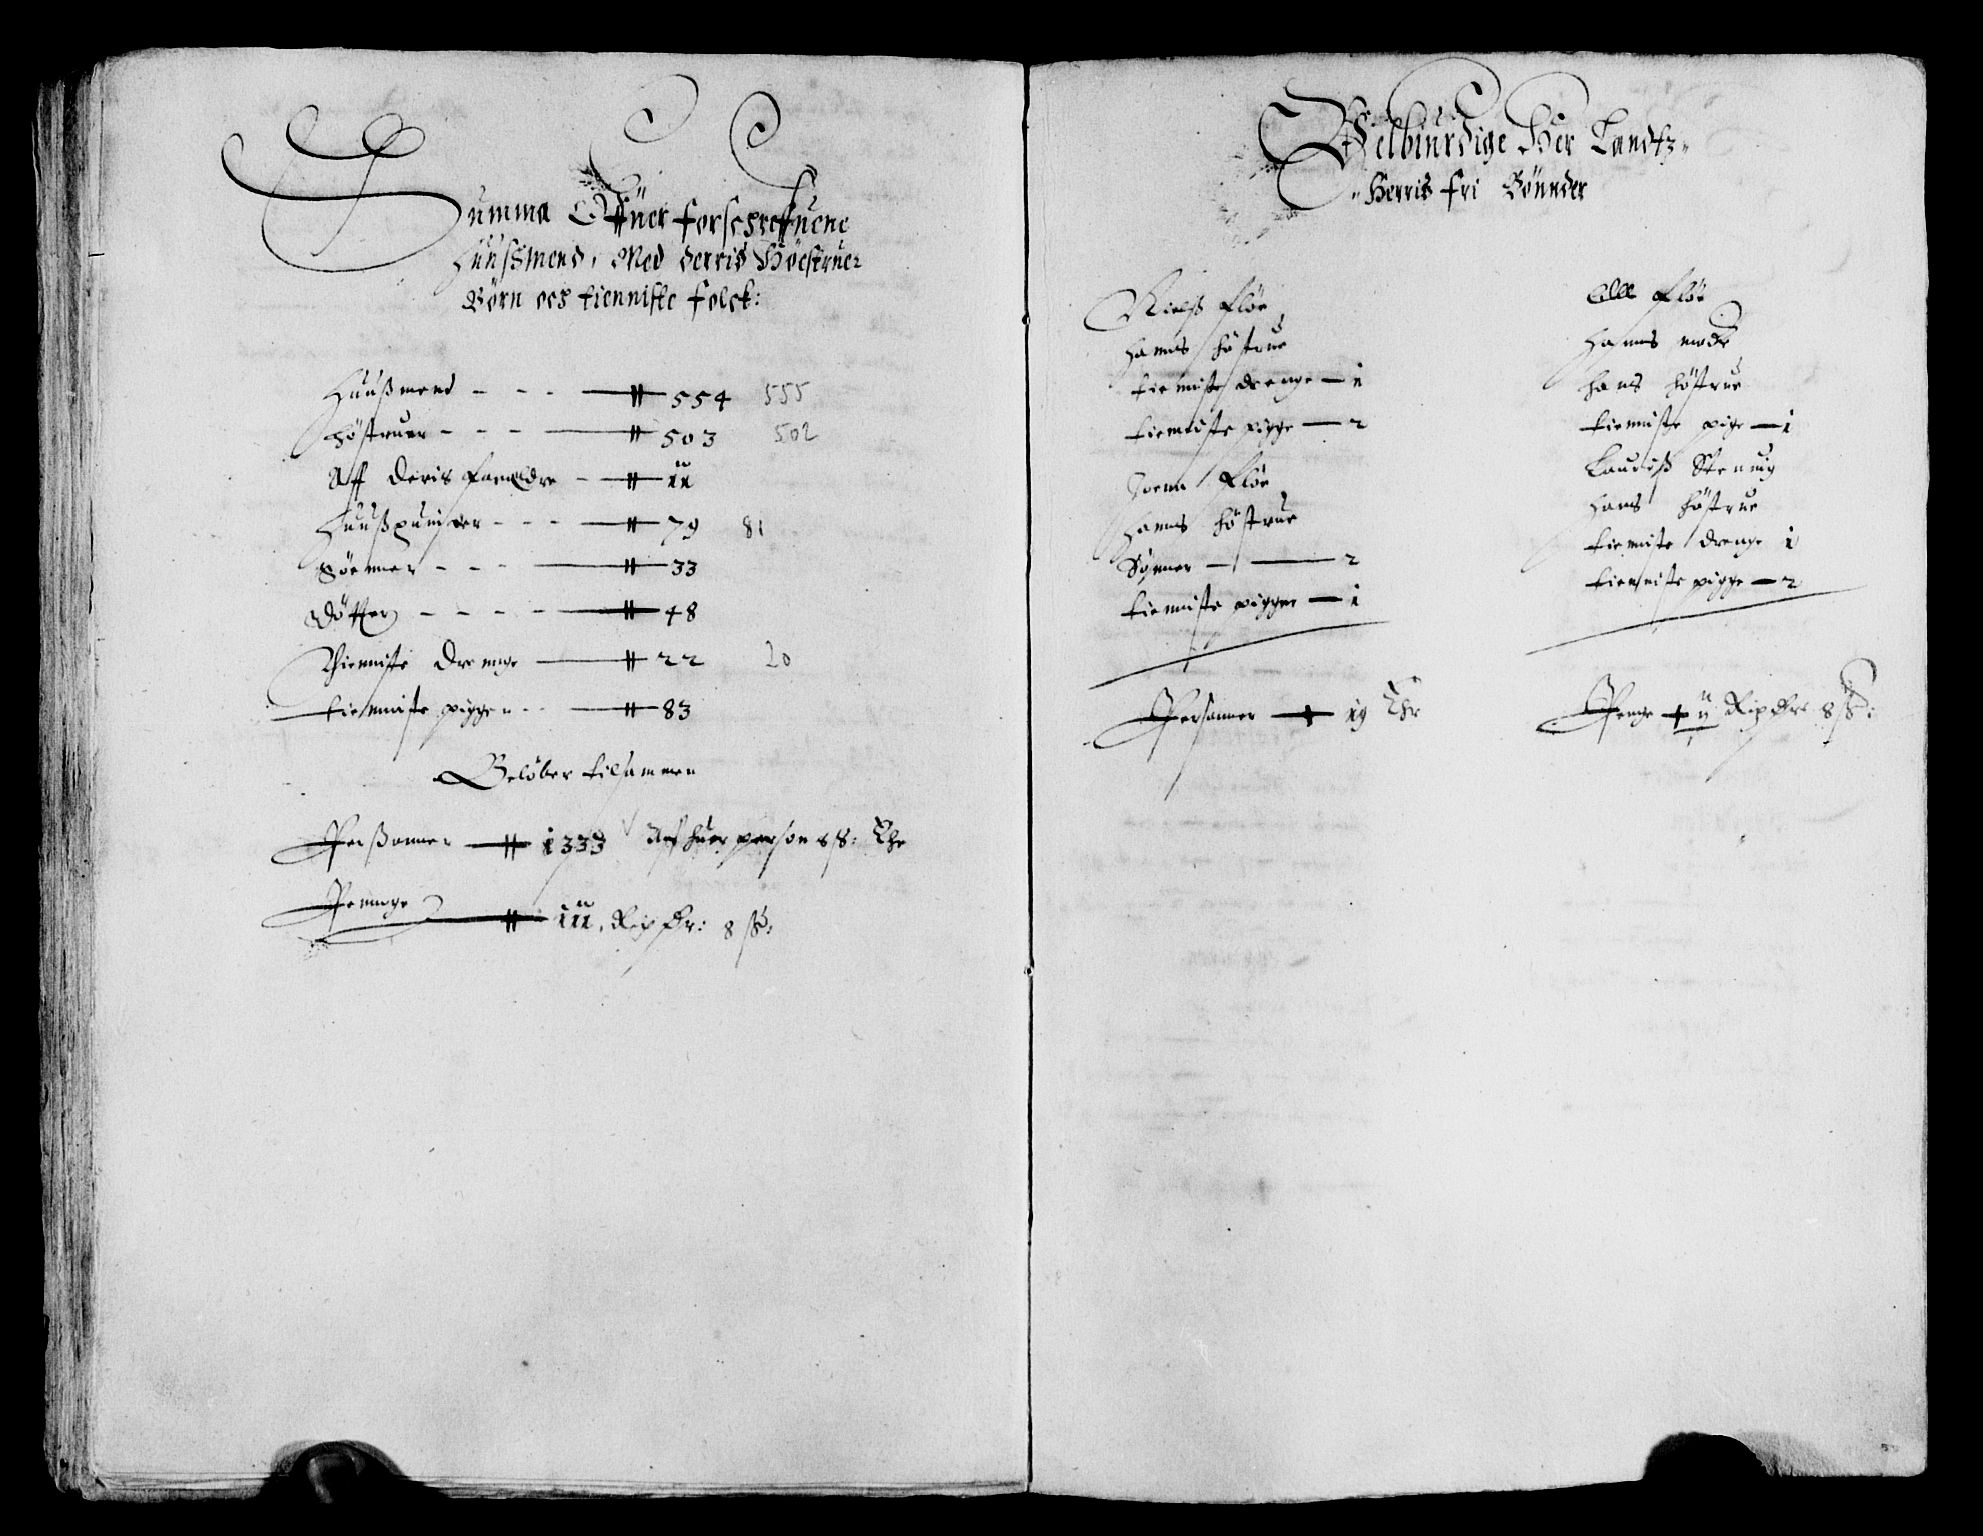 Summa Offuer forschreffuene
Huussmend, Med derris Höestruer
Börn och tienniste folck:
Huußmend - - - 554 555
höstruer - - - 503 502
Aff deris foreldre - ii
Huußquinder - - - 79 81
Söenner - - - 33
Dötter - - - - 48
Thienniste Drennge 22 20
tienniste piggen - - 83
Belöber tilsammen
Perßonner 1333 Aff huer person 8 ß:
Pennge iii Rix dr: 8 ß:
Velbiurdige Her Landtz-
-Herris fri Bönnder
Nielß Flöe
hanns höstrue
tienniste drenge - ii
tienniste pigge - 2
Joenn Flöe
hanns höstrue
Sönner - 2
tienniste pigger - i
Personner 19
Olle Flöe
hanns moder
hans höstrue
tienniste pige - i
Lauridß
hans höstrue
tienniste drenge i
tienniste pigge - 2
Penge ii Rix dr 8 ß: